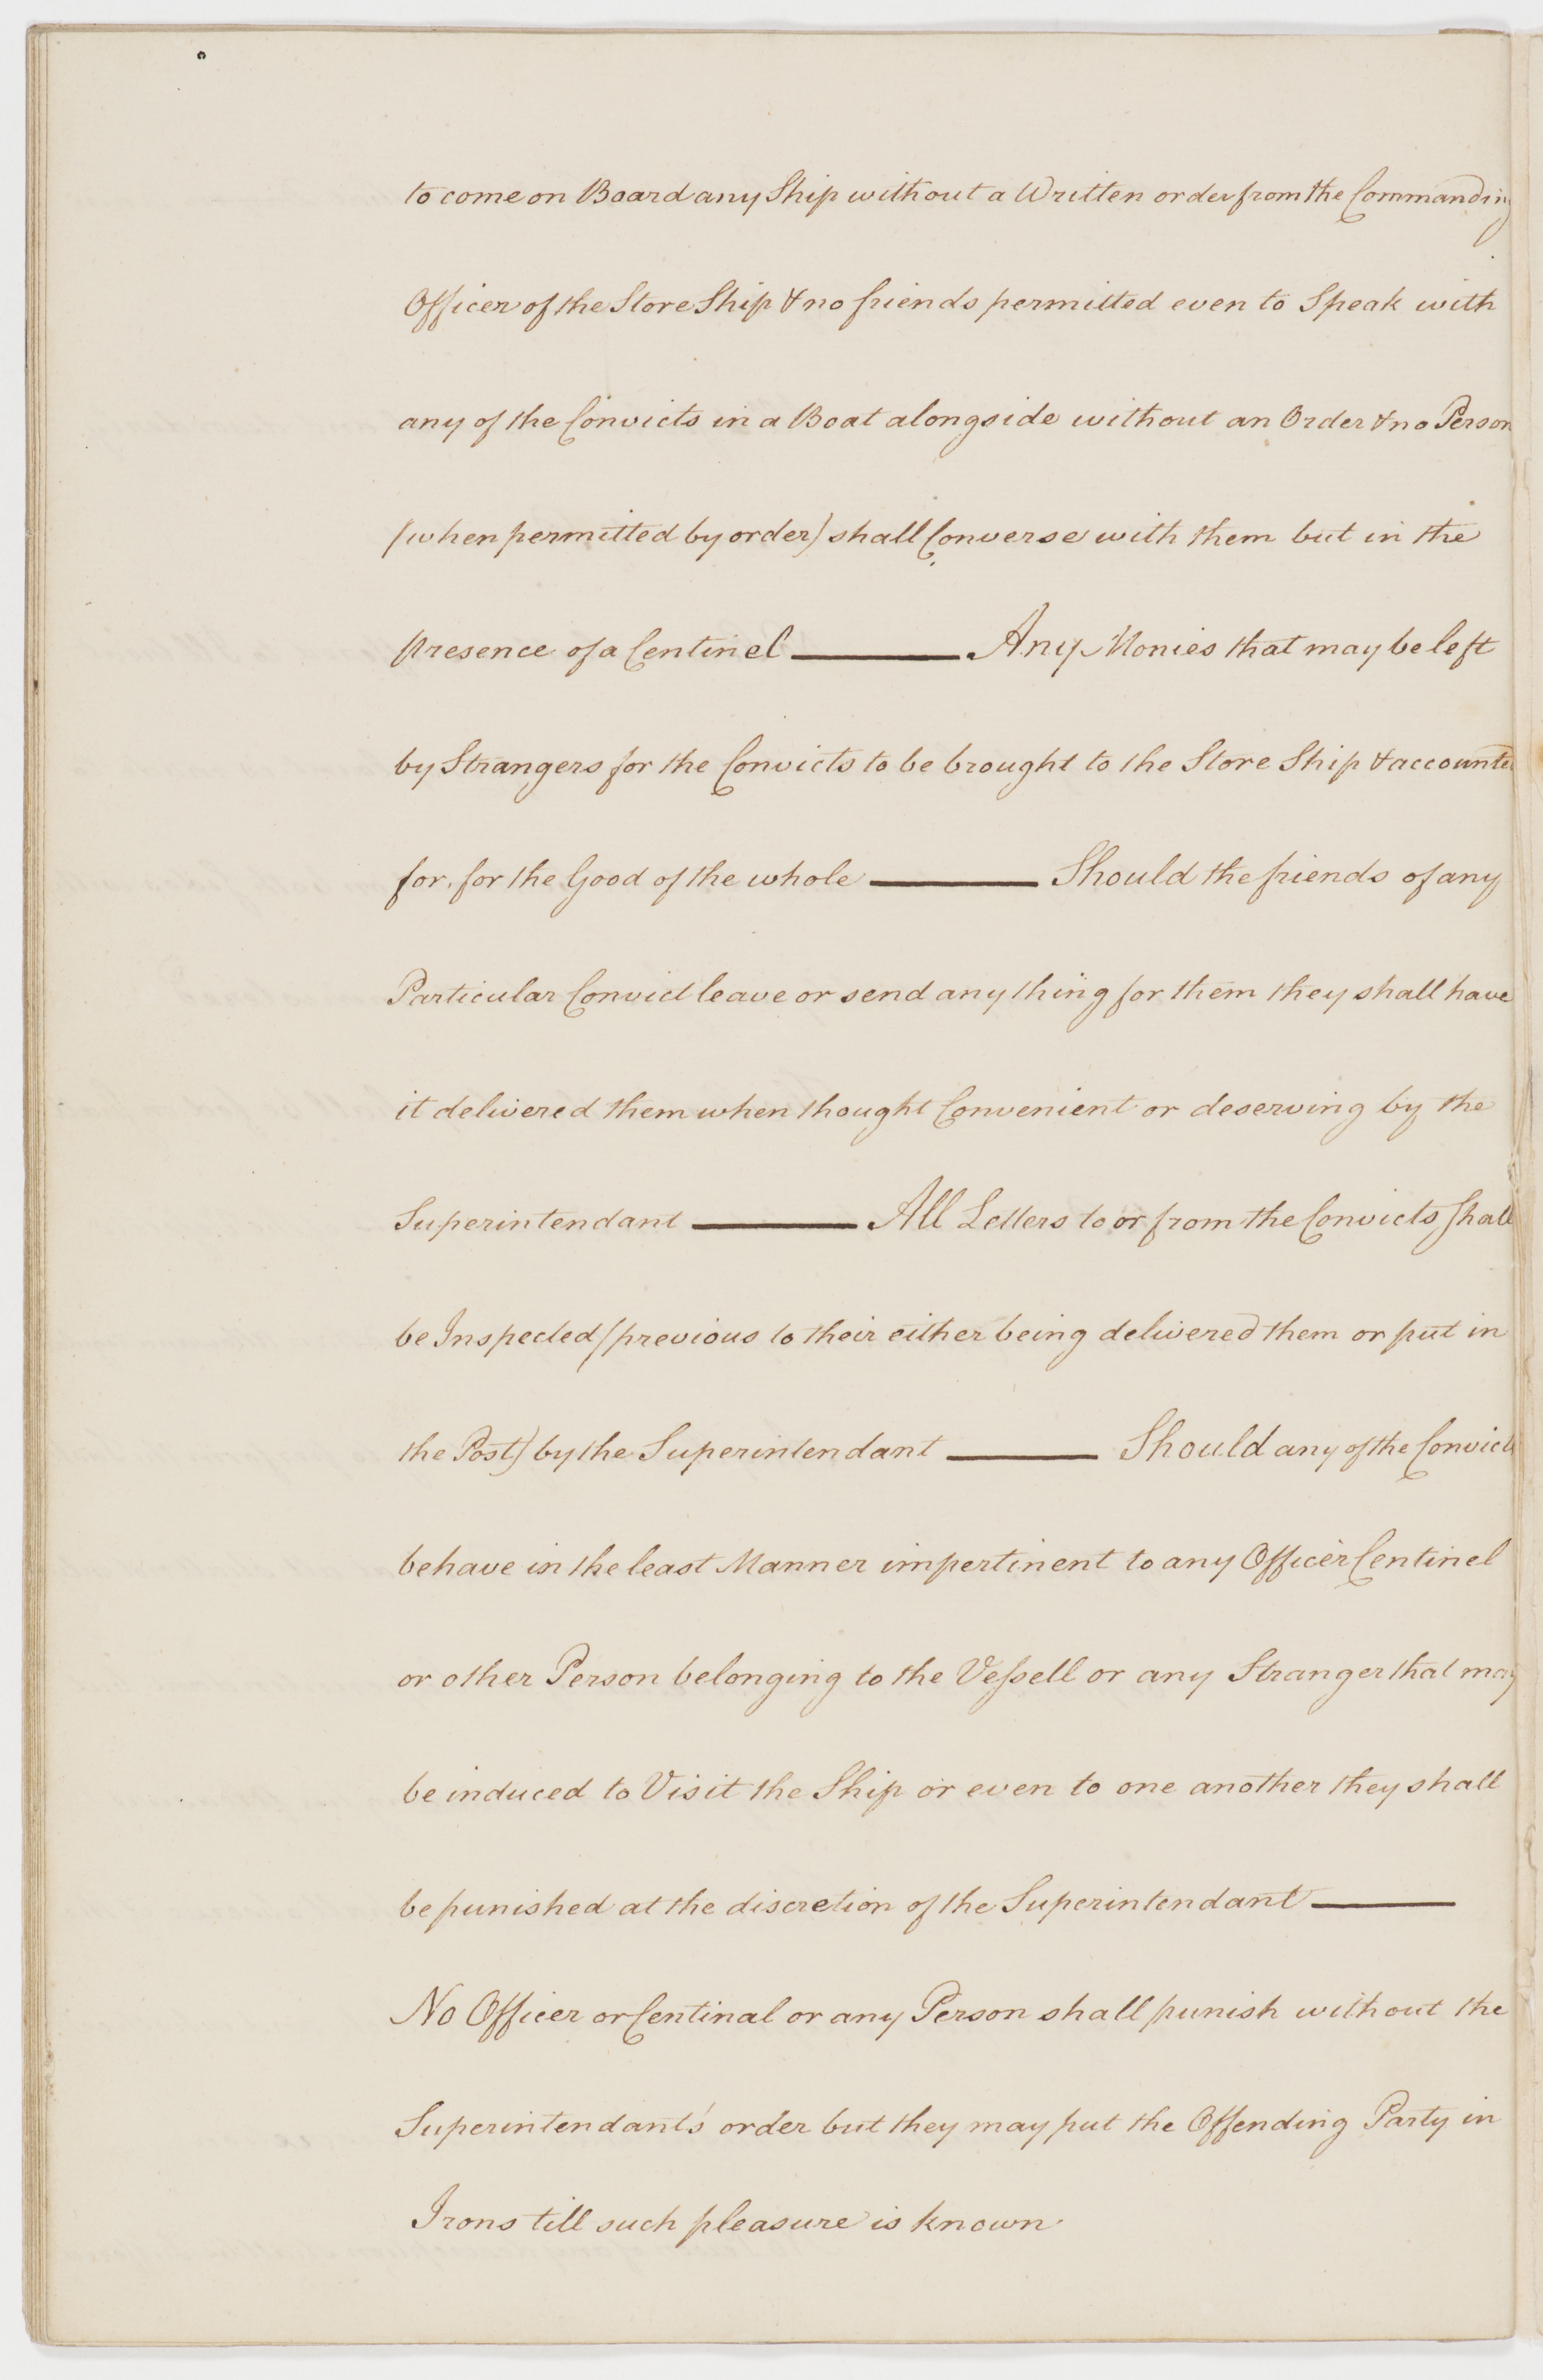 to come on Board any Ship without a Written order from the Commanding
Officer of the Store Ship & no friends permitted even to Speak with
any of the Convicts in a Boat alongside without an Order & no Person
(when permitted by order) shall Converse with them but in the
presence of a Centinel ——— Any Monies that may be left
by Strangers for the Convicts to be brought to the Store Ship & accounted
for, for the Good of the whole ——— Should the friends of any
Particular Convict leave or send any thing for them they shall have
it delivered them when thought Convenient or deserving by the
Superintendant ——— All Letters to or from the Convicts shall
be Inspected (previous to their either being delivered them or put in
the Post) by the Superintendant ——— Should any of the Convicts
behave in the least Manner impertinent to any Officer Centinel
or other Person belonging to the Vessell or any Stranger that may
be induced to Visit the Ship or even to one another they shall
be punished at the discretion of the Superintendant ———
No Officer or Centinal or any Person shall punish without the
Superintendant's order but they may put the Offending Party in
Irons till such pleasure is known.